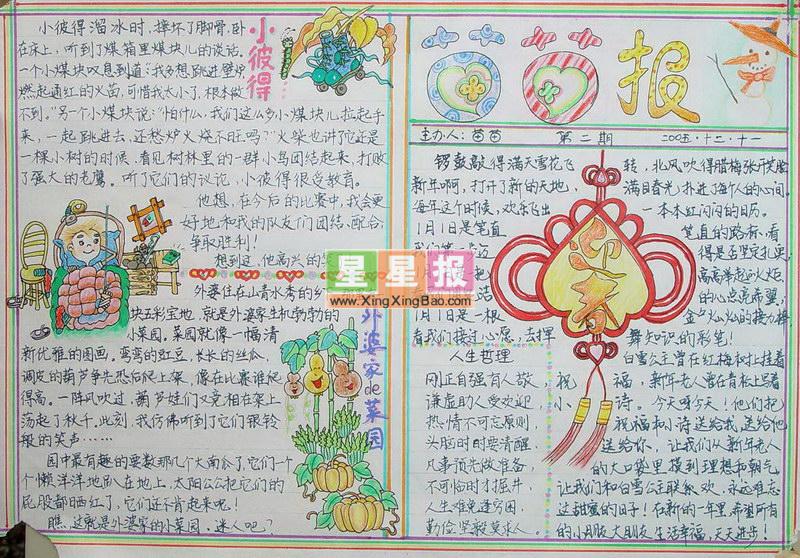 小彼得溜冰时,摔坏了脚骨,卧
在床上,听到了煤箱里煤块儿的谈话。
一个小煤块叹息到道:"我多想跳进壁炉
燃起通红的火苗,可惜我太小了,根本做
不到。"另个小煤块说:"怕什么,我们这么多小煤块儿拉起手
来,一起跳进去,还愁炉火烧不旺吗?"火柴也讲了它还是
一棵小树的时候,看见树林里的一群小鸟团结起来,打败
了强大的老鹰。听了它们的议论,小彼得很受教育。
他想,在今后的比赛中,我会更
好地和我的队友们团结、配合,
争取胜利!
想到这,他高兴的
小彼得
外婆住在山青水秀的乡
块五彩宝地,就是外婆家生机勃勃的
小菜园。菜园就像一幅清
新优雅的图画,弯弯的豇豆,长长的丝瓜,
调皮的葫芦争先恐后爬上架,像在比赛谁爬
得高。一阵风吹过,葫芦娃们又竞相在架上
荡起了秋千。此刻,我仿佛听到了它们银铃
般的笑声……
园中最有趣的要数那几个大南瓜了,它们一个
个懒洋洋地趴在地上,太阳公公把它们的
屁股都晒红了,它们还不肯起来呢!
瞧,这就是外婆家的小菜园,迷人吧?
外婆家de菜园
星星报
www.XingXingBao.com
苗苗报
主办人:苗苗 第二期 2005.十二.十一
锣鼓敲得满天雪花飞转,北风吹得腊梅张开笑脸
新年啊,打开了新的天地,满目春光扑进了每个人的心间。
每年这个时候,欢乐飞出一本本红闪闪的日历。
1月1日是笔直
笔直的路标,看
得是否坚定扎更,
高高举起的火炬,
的心点亮希望,
1月1日是一根
金夕火灿灿的接力棒
看我们接过心愿,去挥
舞知识的彩笔!
迎春
白雪公主曾在红梅树上挂着
祝福,新年老人曾在青松上写着
小诗。今天呀今天!他们把
祝福和小诗送给我,送给他
送给你,让我们从新年老人
的大口袋里摸到理想和朝气
让我们和白雪公主联欢,永远难忘
这甜蜜的日子!在新的一年里,希望所有
的小朋友大朋友生活幸福,天天进步!
人生哲理
刚正自强有人敬,
谦虚助人受欢迎,
热情不可忘原则
头脑时时要清醒
凡事预先做准备,
不可临时才掘井,
人生难免逢穷困
勤俭